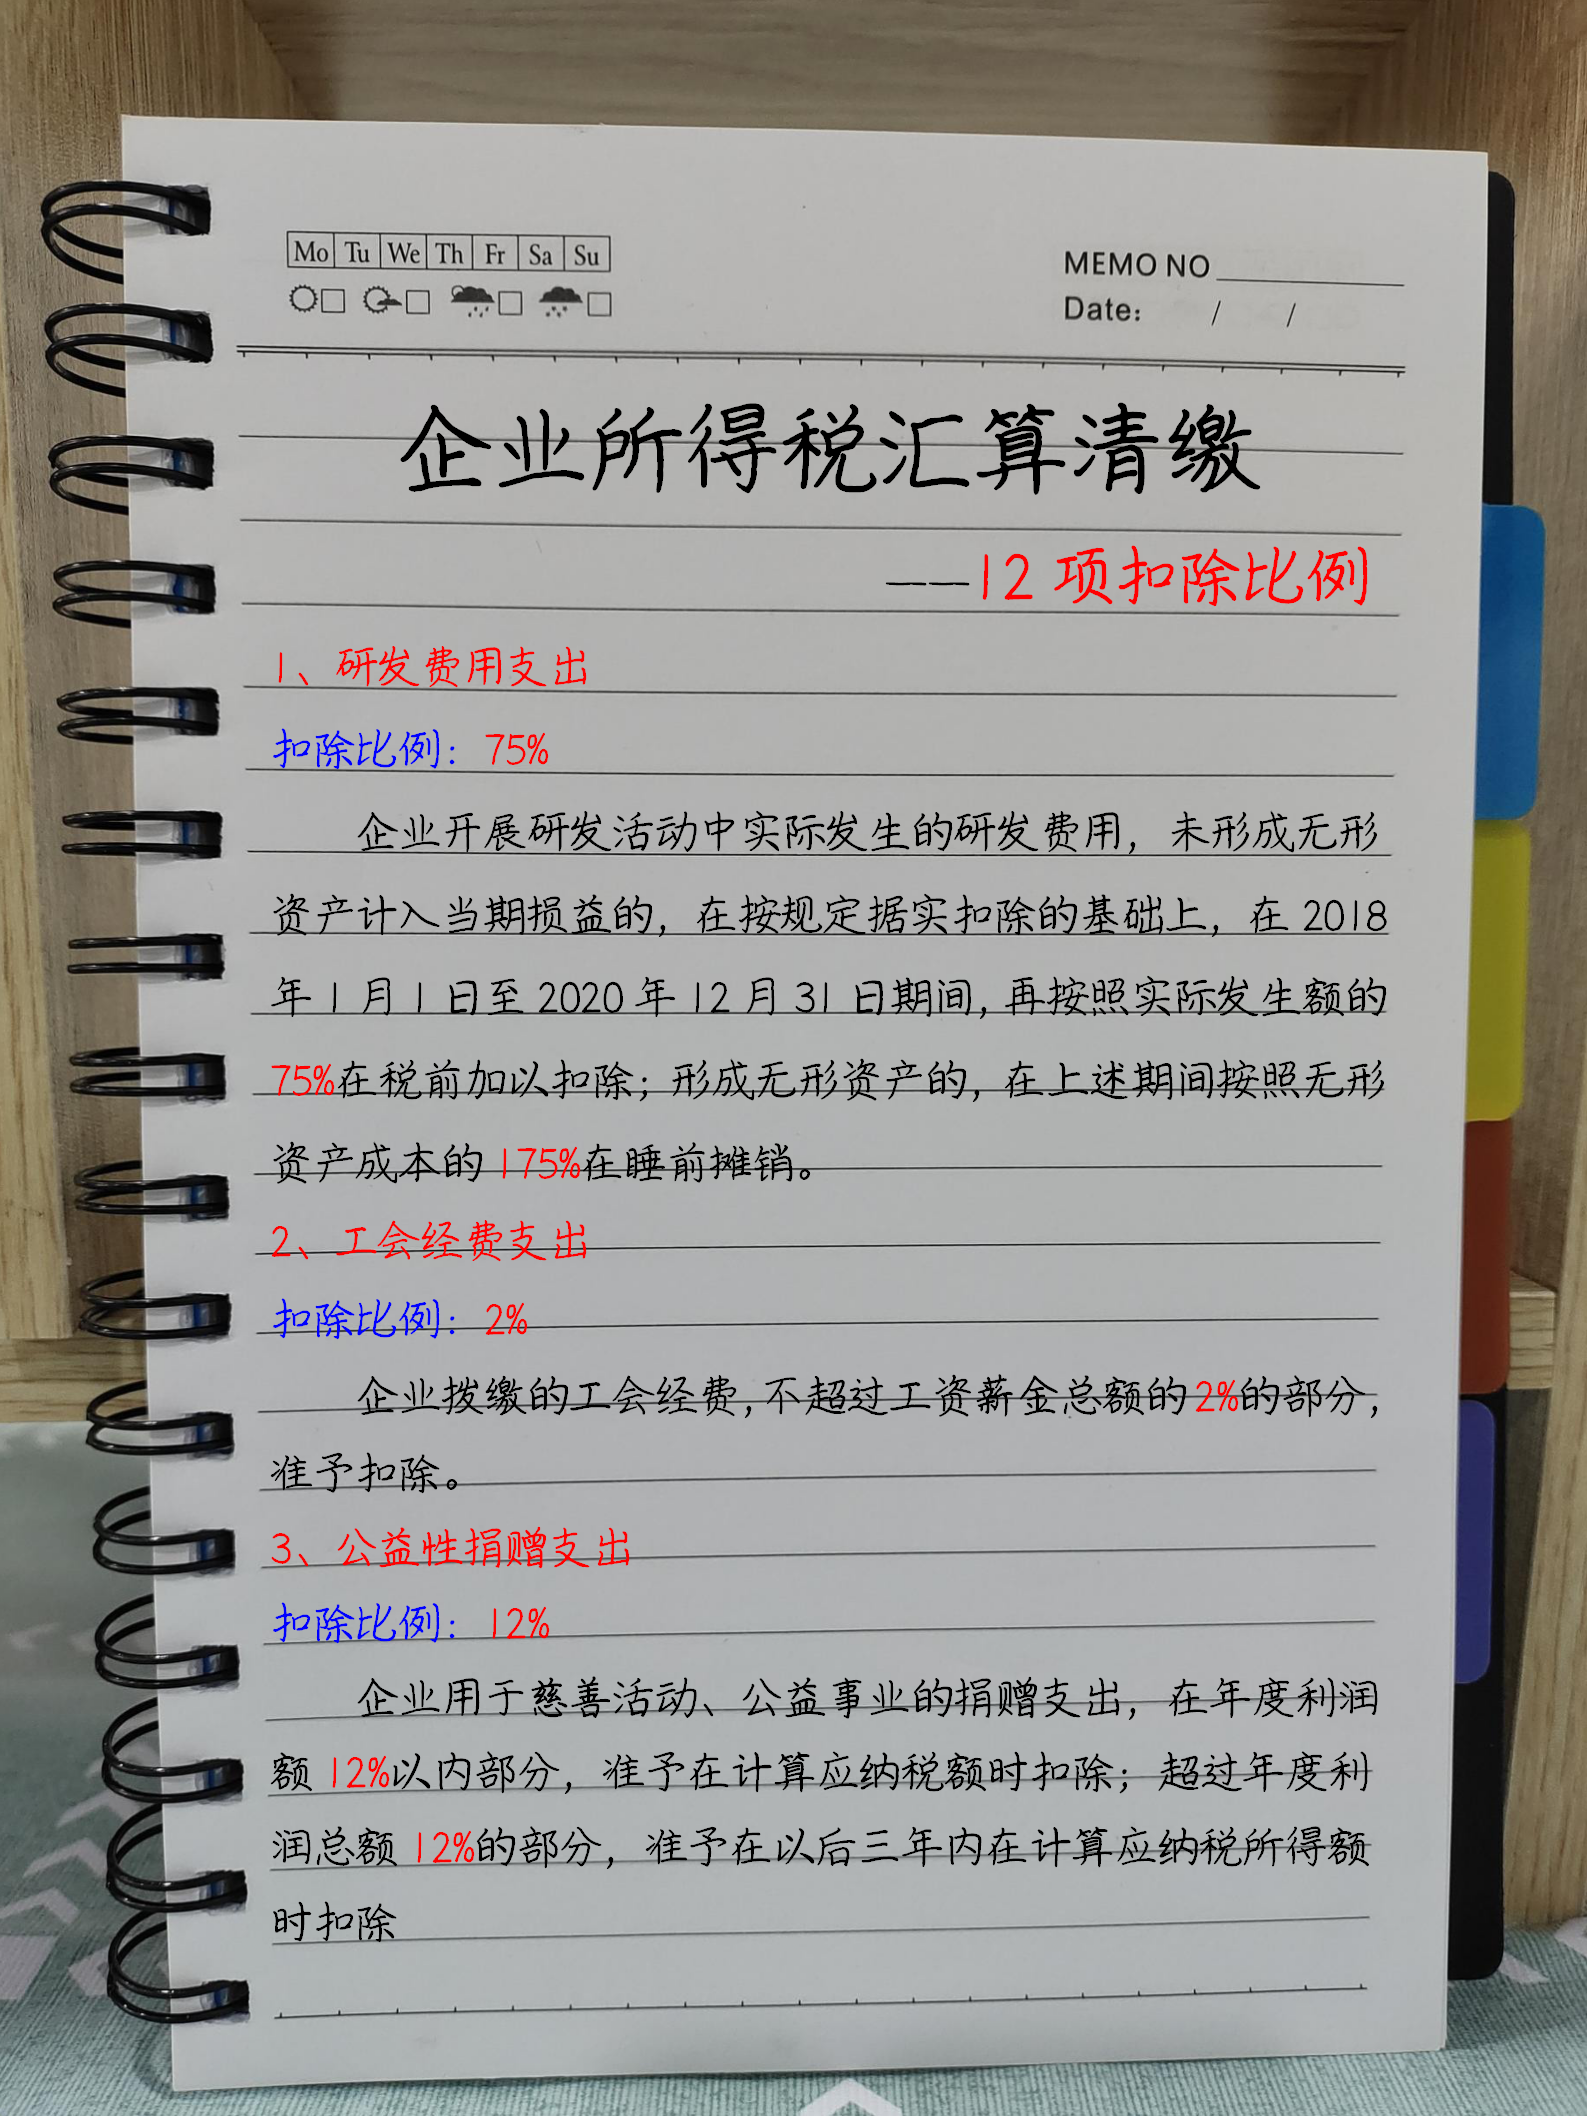 Mo Tu We Th Fr Sa Su
MEMO NO
Date: / /
企业所得税汇算清缴
——12 项扣除比例
1、研发费用支出
扣除比例：75%
企业开展研发活动中实际发生的研发费用，未形成无形
资产计入当期损益的，在按规定据实扣除的基础上，在 2018
年 1 月 1 日至 2020 年 12 月 31 日期间，再按照实际发生额的
75%在税前加以扣除；形成无形资产的，在上述期间按照无形
资产成本的 175%在睡前摊销。
2、工会经费支出
扣除比例：2%
企业拨缴的工会经费，不超过工资薪金总额的2%的部分，
准予扣除。
3、公益性捐赠支出
扣除比例：12%
企业用于慈善活动、公益事业的捐赠支出，在年度利润
额 12%以内部分，准予在计算应纳税额时扣除；超过年度利
润总额 12%的部分，准予在以后三年内在计算应纳税所得额
时扣除